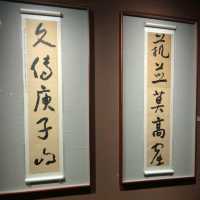 藝並莫高窟
久傳庚子山